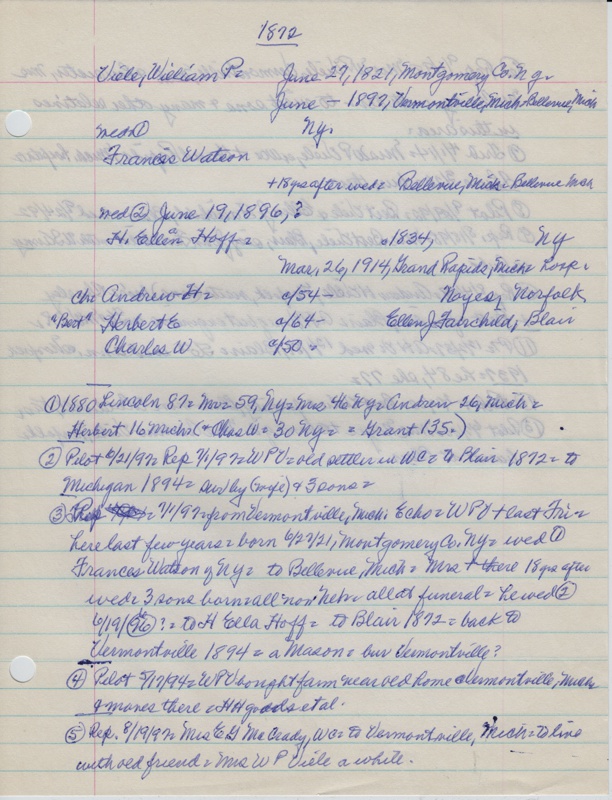 1872
Viele, William P = June 27, 1821, Montgomery Co. N.Y.
June - 1897, Vermontville, Mich = Bellevue, Mich
wed ① Ny.
Frances Watson
+ 18 yrs after wed = Bellevue, Mich = Bellevue Mich
wed ② June 19, 1896, ?
H. Ellen Hoff = c/1834, Ny
Mar. 26, 1914, Grand Rapids, Mich =
ch: Andrew H = c/54 - Noyes, Norfolk
"Bert" Herbert E c/64 - Ellen J Fairchild, Blair
Charles W c/50 =
① 1880 Lincoln 87 = Mr = 59, Ny = Mrs 46 Ny = Andrew 26, Mich =
Herbert 16 Mich = (+ Chas W = 30 Ny = = Grant 135.)
② Pilot 6/21/97 = Rep 7/1/97 = WPV = old settler in WC = to Blair 1872 = to
Michigan 1894 = sur by (wife) & 3 sons =
③ Rep = 7/1/97 = from Vermontville, Mich. Echo = WPV + last Fri =
here last few years = born 6/27/21, Montgomery Co. Ny = wed ①
Frances Watson of Ny = to Bellevue, Mich = Mrs + there 18 yrs after
wed = 3 sons born = all now Neb = all at funeral = he wed ②
6/19/96 ? = to H Ella Hoff = to Blair 1872 = back to
Vermontville 1894 = a Mason = bur Vermontville?
④ Pilot 5/17/94 = WPV bought farm near old home Vermontville, Mich
& moves there = HH goods et al.
⑤ Rep. 8/19/97 = Mrs E G McCrady, WC = to Vermontville, Mich = to live
with old friend = Mrs W P Viele a while.